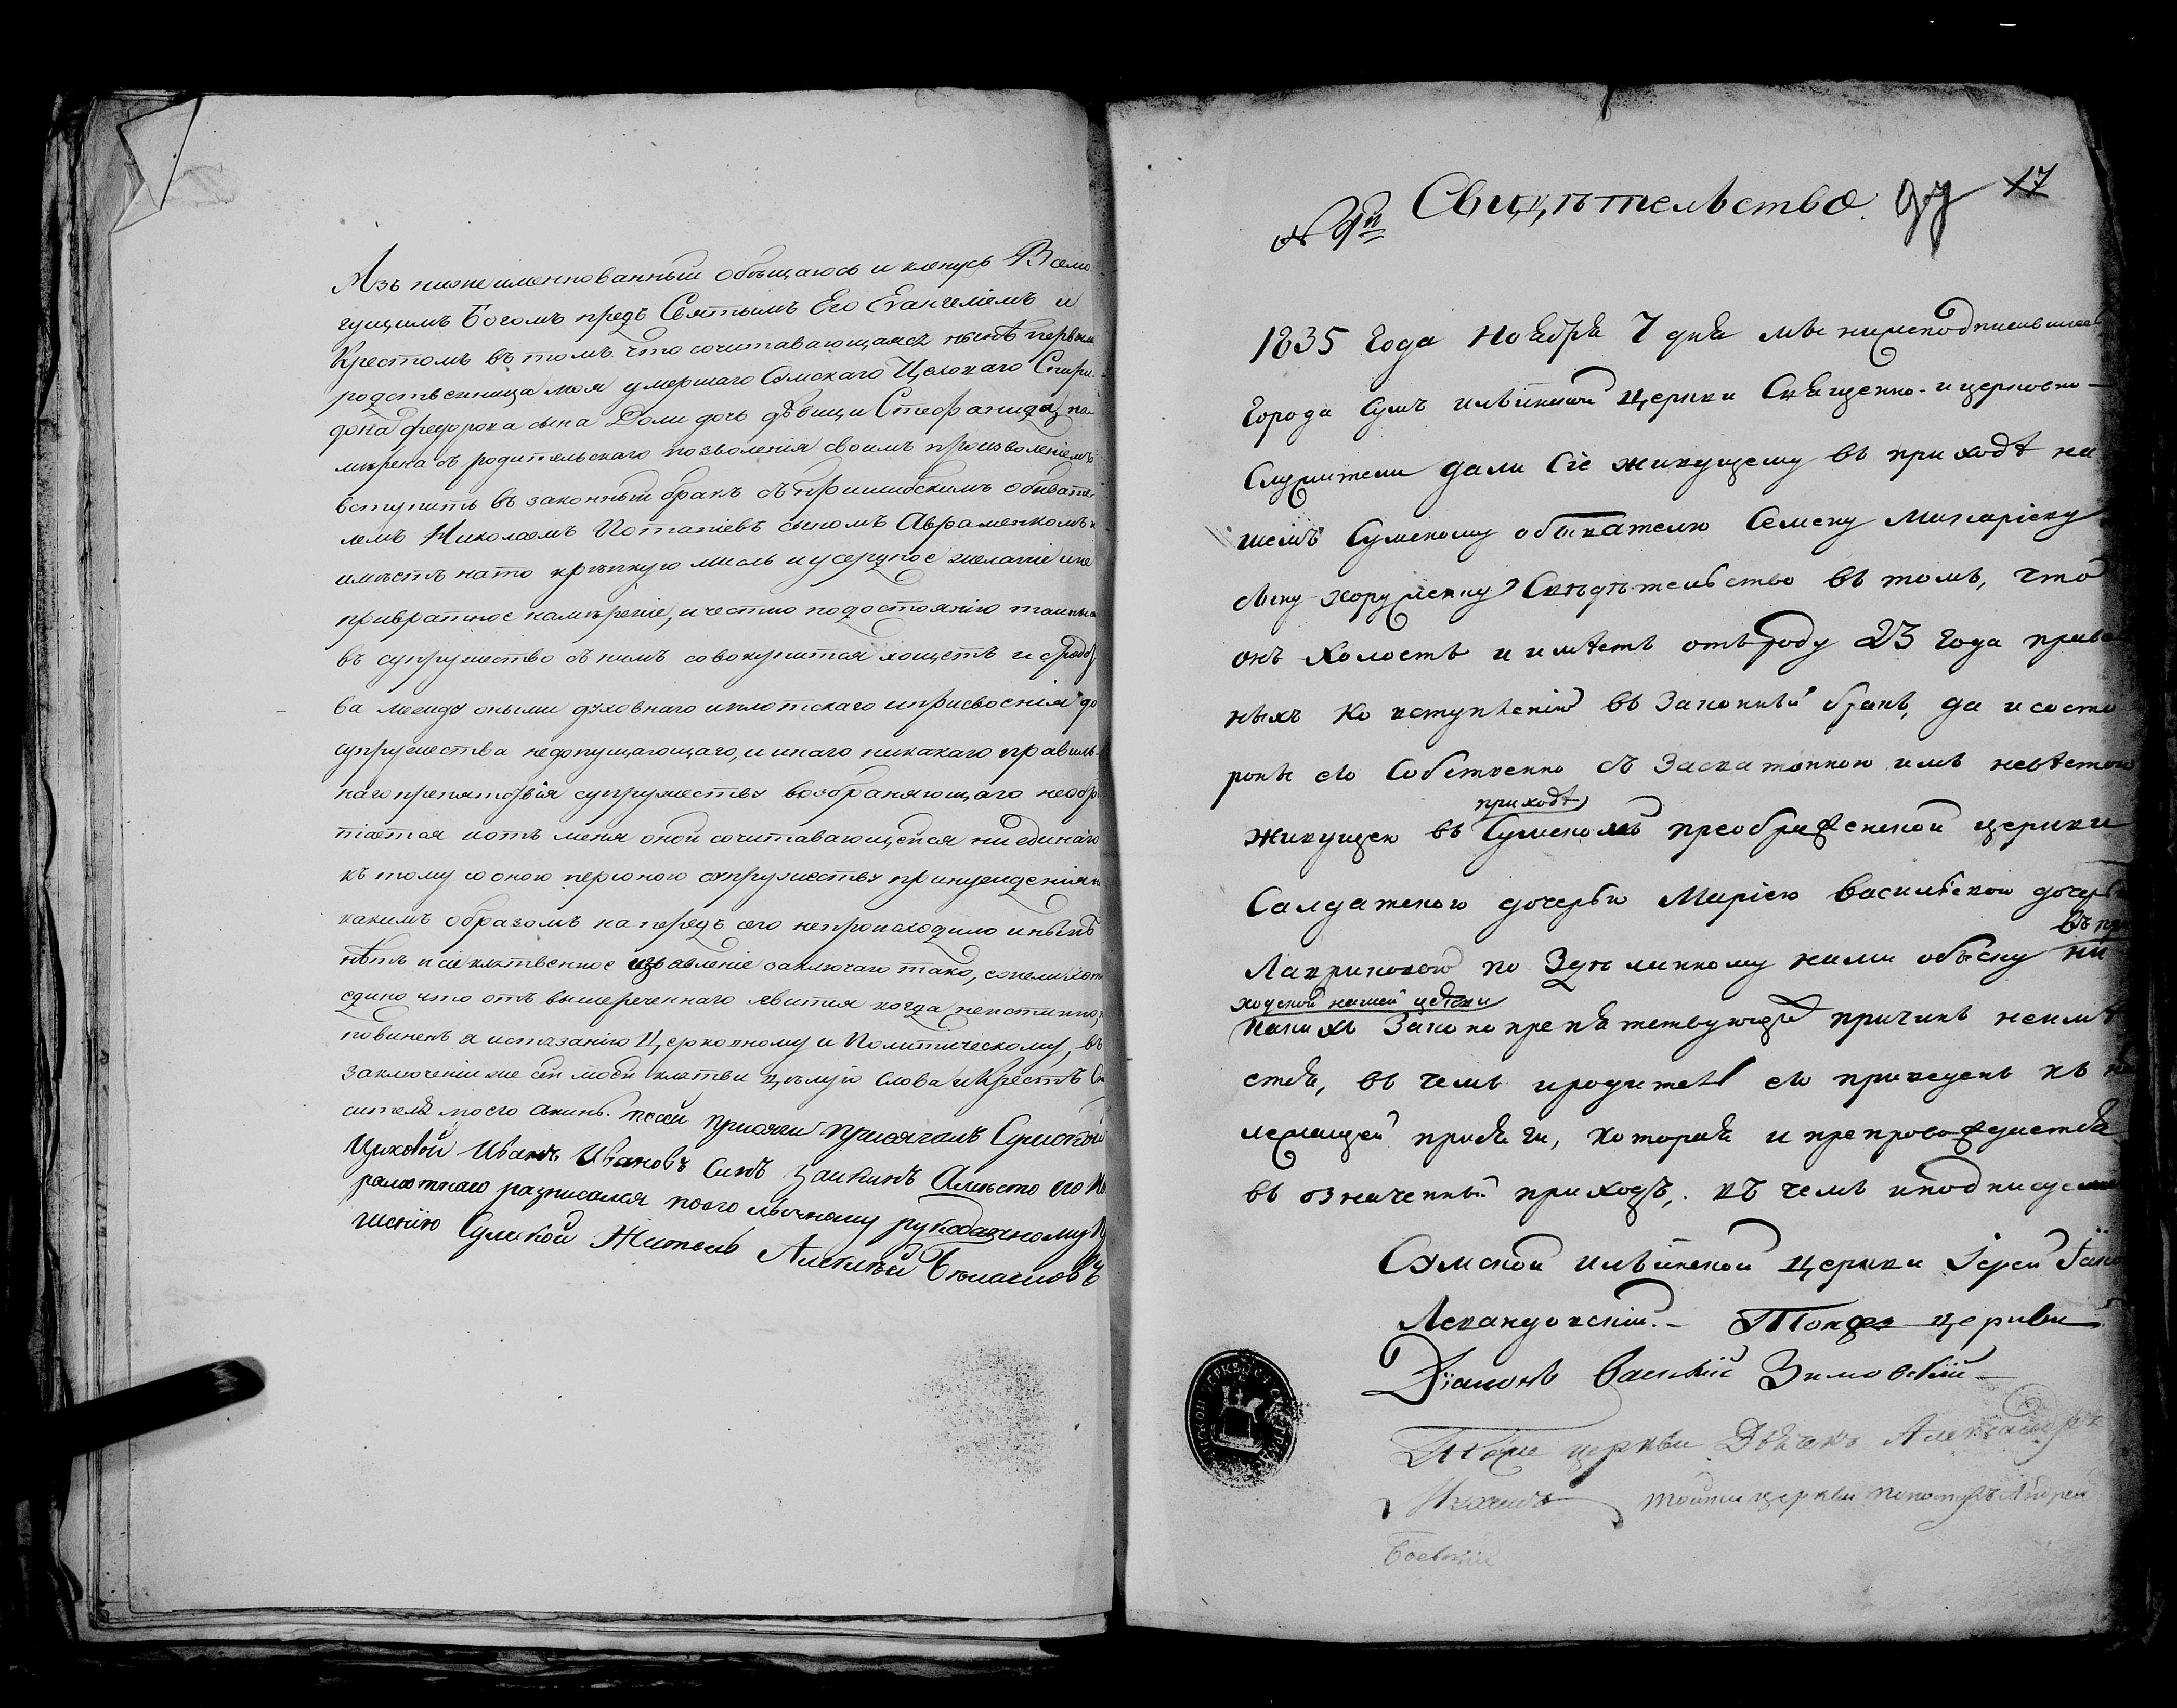 Азъ нижеименнованный обѣщаюсь и кленусь Всемо
гущимъ Богомъ предъ Святымъ Его Евангеліемъ и
Крестомъ въ томъ что сочитавающаясь нынѣ первымъ
родственница моя умершаго Сумскаго Цеховаго Спири
дона федорова сына дочь дѣвица Стефанида на
мирена съ родительскаго позволенія своимъ произволеніемъ
вступить въ законный бракъ съ обывате
лемъ Николаемъ Потапіевъ сыномъ Авраменкомъ и
имѣетъ на то крѣпкую мисль и усердное желаніе и не
привратное намѣреніе, и честно по достоянію таинства
въ супружество съ нимъ совокупится хощетъ и сродс
ва между оными духовнаго и плотскаго и присвоенія до
супружества недопущающаго, и инаго никакаго правиль
наго препятствія супружеству возбраняющаго необрѣ
тается и отъ меня оной сочитавающейся ни единаго
къ тому со оною персоною супружеству принужденія ни
какимъ образомъ напредъ сего непроисходило и нынѣ
нѣтъ и сіе клятвенное изъявленіе заключаю тако, ежели хотя
едино что отъ вышереченнаго явится когда неистинно,
повиненъ я истязанію Церковному и Политическому, въ
заключеніи же сей моей клятви цѣлую Слова и Крестъ Спа
сителя моего аминь. по сей присяги присягалъ Сумской
Цеховой Иванъ Ивановъ Синъ Заикинъ Аместо его не
рамотнаго розписался по его личному рукоданному про
шенію Сумской Житель Алексѣй
Свидѣтельство. 17
1835 года Ноября 7 дня мы нижеподписавшіеся
Города Сумъ Ильинской Церкви Священно- и церковно-
Служители дали Сіе живущему въ приходѣ на
шемъ Сумскому обывателю Семену Макаріеву
сыну Хоруженку Свѣдѣтельство въ томъ, что
онъ Холостъ и имѣетъ отъ роду 23 года
ныхъ ко вступленію въ Законный бракъ, да и со сто
роны его Собственно съ Засватанною имъ невѣстою
приходѣ
живущею въ Сумскомъ преображенской церкви
Салдатскою дочерью Маріею Васильевою дочерью
Лавриновою по Здѣланному нами обыску ни
въ при
ходской нашей церкви
какихъ Законопрепятствующихъ причинъ неимѣ
ется, въ чемъ и родитель его приведенъ къ на
лежащей присяги, которая и препровождается
въ означенный приходъ, въ чемъ и подписуемся
Сумской Ильинской Церкви Іерей Іоанъ
Левандовскій. – Тояже церкви
Діаконъ Василій Зимовскій
Тояже церкви Дьячокъ Александръ
тойжи церкви пономарь Андрей